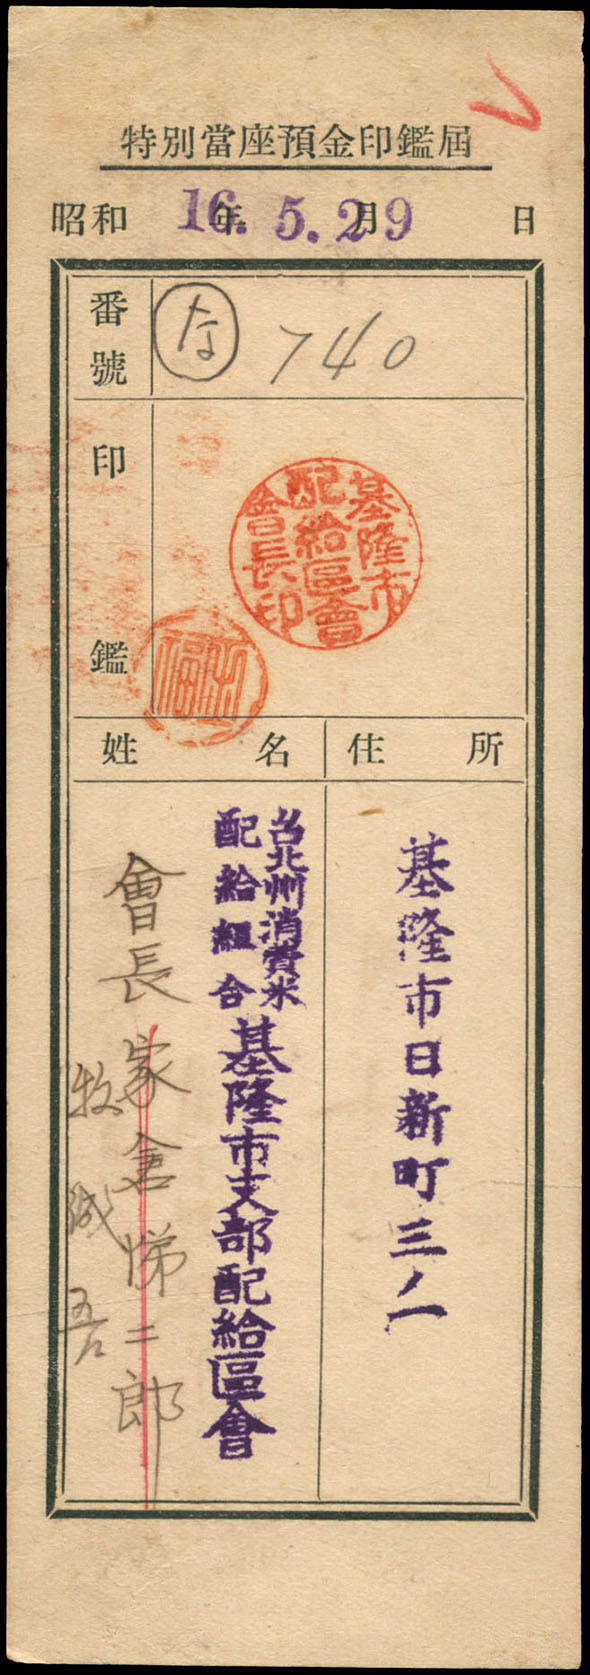 特別當座預金印鑑屆
昭和 16.年 5.月29 日
番號
な 740
印鑑
基隆市
配給區會
會長印
住所
姓名
基隆市日新町三ノ一
台北州消費米
配給組合
基隆市支部配給區會
會長 家倉悌二郎
牧誠吾